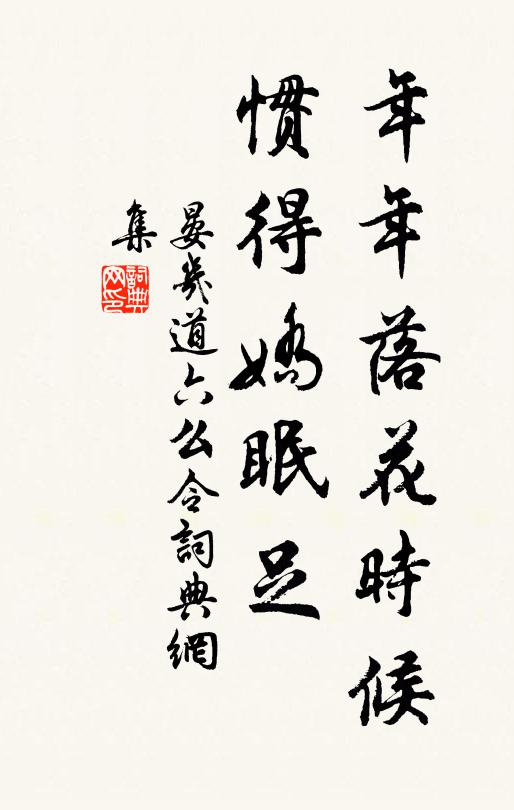 年年落花時候
慣得嬌眠足
晏幾道六么令詞典網
集
詞典
網印